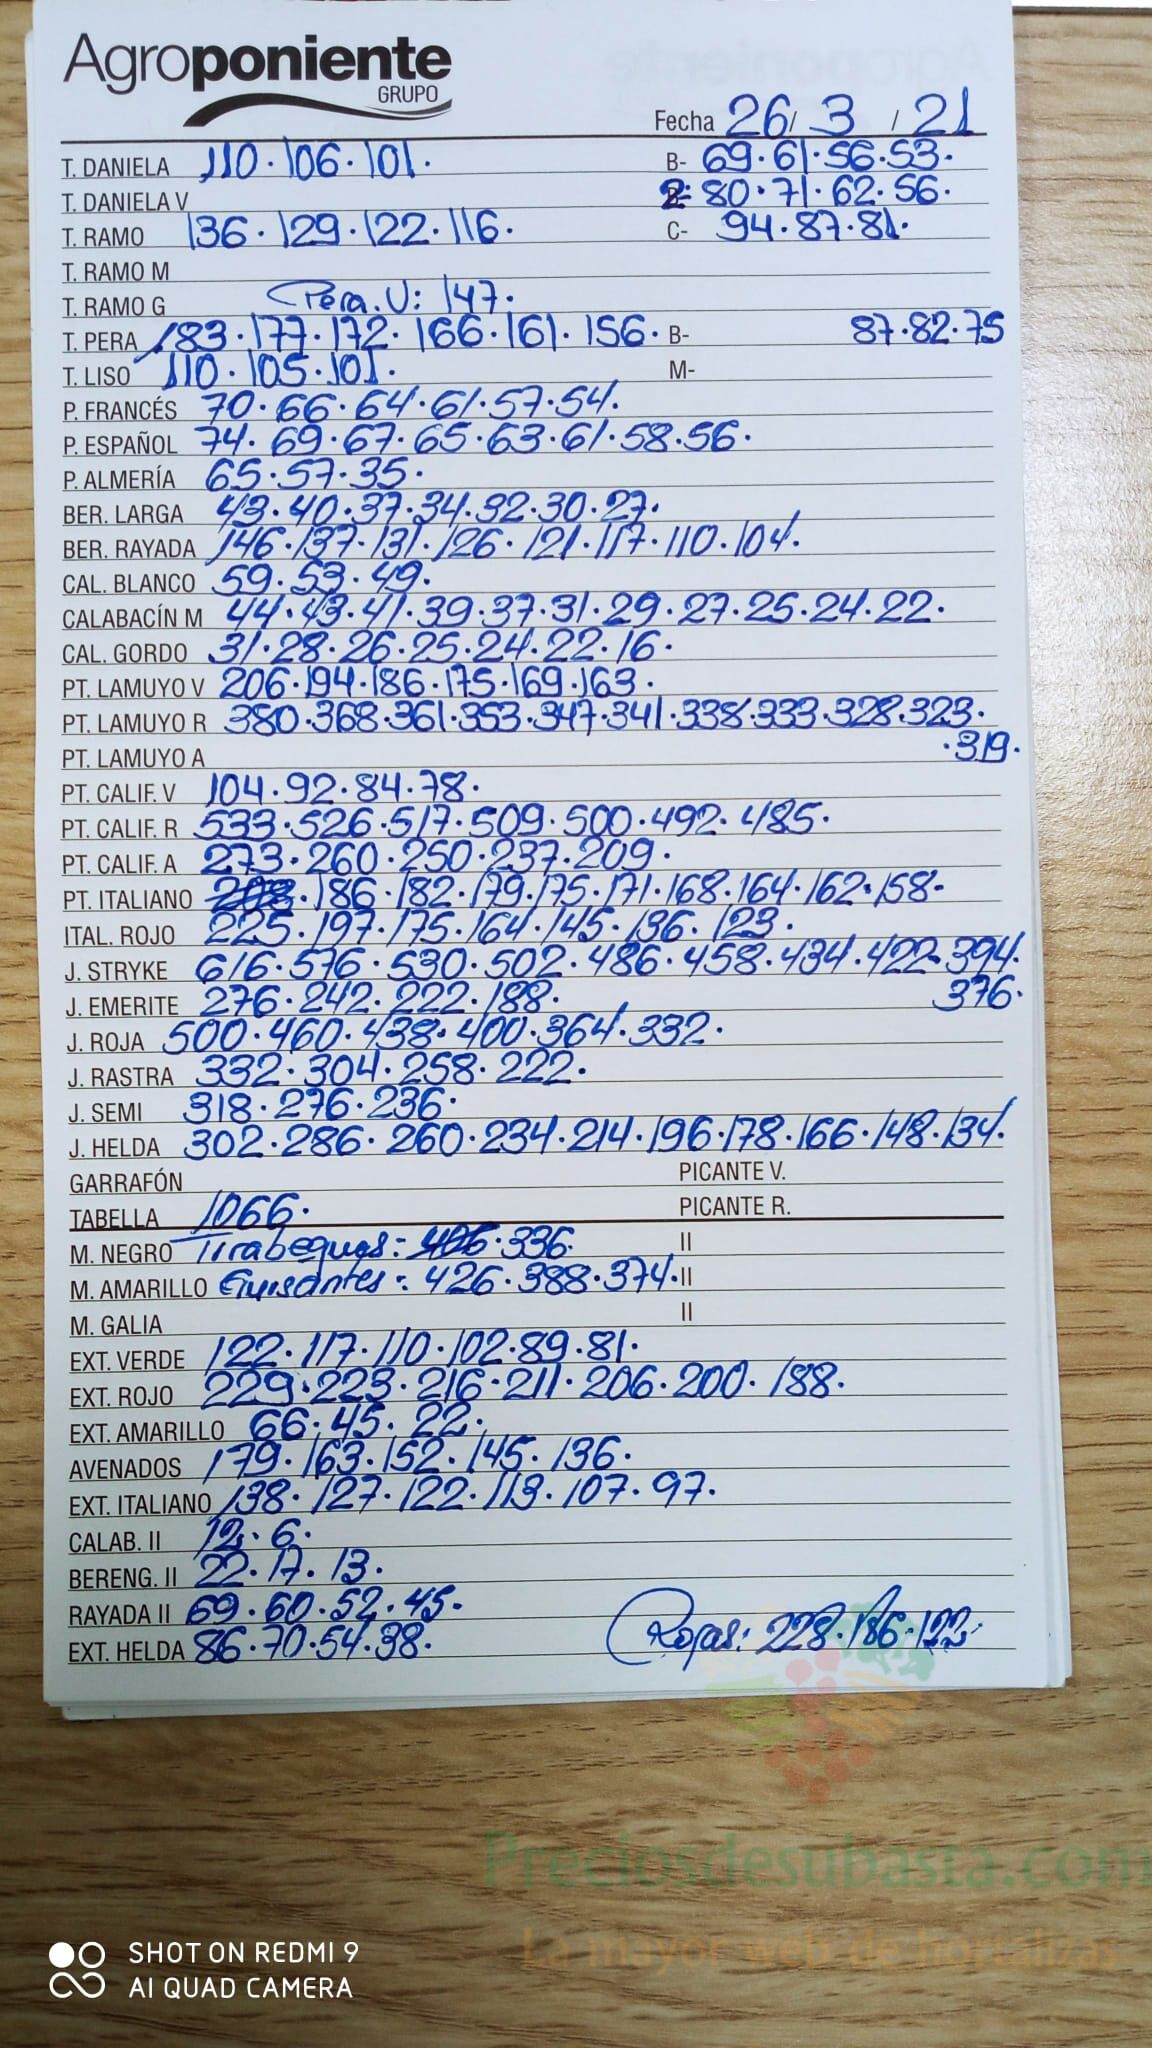 Agroponiente
GRUPO
Fecha 26/ 3 / 21
T. DANIELA 110. 106. 101. B- 69.61.56.53.
T. DANIELA V 2- 80.71.62.56.
T. RAMO 136. 129. 122. 116. C- 94.87.81.
T. RAMO M
T. RAMO G Pera. V: 147.
T. PERA 183. 177. 172. 166. 161. 156. B- 87.82.75
T. LISO 110. 105. 101. M-
P. FRANCÉS 70. 66. 64. 61. 57. 54.
P. ESPAÑOL 74. 69. 67. 65. 63. 61. 58. 56.
P. ALMERÍA 65. 57. 35.
BER. LARGA 43. 40. 37. 34. 32. 30. 27.
BER. RAYADA 146. 137. 131. 126. 121. 117. 110. 104.
CAL. BLANCO 59. 53. 49.
CALABACÍN M 44. 43. 41. 39. 37. 31. 29. 27. 25. 24. 22.
CAL. GORDO 31. 28. 26. 25. 24. 22. 16.
PT. LAMUYO V 206. 194. 186. 175. 169. 163.
PT. LAMUYO R 380. 368. 361. 353. 347. 341. 338. 333. 328. 323.
PT. LAMUYO A .319.
PT. CALIF. V 104. 92. 84. 78.
PT. CALIF. R 533. 526. 517. 509. 500. 492. 485.
PT. CALIF. A 273. 260. 250. 237. 209.
PT. ITALIANO 186. 182. 179. 175. 171. 168. 164. 162. 158.
ITAL. ROJO 225. 197. 175. 164. 145. 136. 123.
J. STRYKE 616. 576. 530. 502. 486. 458. 434. 422. 394.
J. EMERITE 276. 242. 222. 188. 376.
J. ROJA 500. 460. 438. 400. 364. 332.
J. RASTRA 332. 304. 258. 222.
J. SEMI 318. 276. 236.
J. HELDA 302. 286. 260. 234. 214. 196. 178. 166. 148. 134.
GARRAFÓN PICANTE V.
TABELLA 1066. PICANTE R.
M. NEGRO Tirabeques: 336. II
M. AMARILLO Guisantes: 426. 388. 374. II
M. GALIA II
EXT. VERDE 122. 117. 110. 102. 89. 81.
EXT. ROJO 229. 223. 216. 211. 206. 200. 188.
EXT. AMARILLO 66. 45. 22.
AVENADOS 179. 163. 152. 145. 136.
EXT. ITALIANO 138. 127. 122. 113. 107. 97.
CALAB. II 12. 6.
BERENG. II 22. 17. 13.
RAYADA II 69. 60. 52. 45.
EXT. HELDA 86. 70. 54. 38. Rojas: 228. 186. 122.
Preciosdesubasta.com
La mayor web de hortalizas
SHOT ON REDMI 9
AI QUAD CAMERA